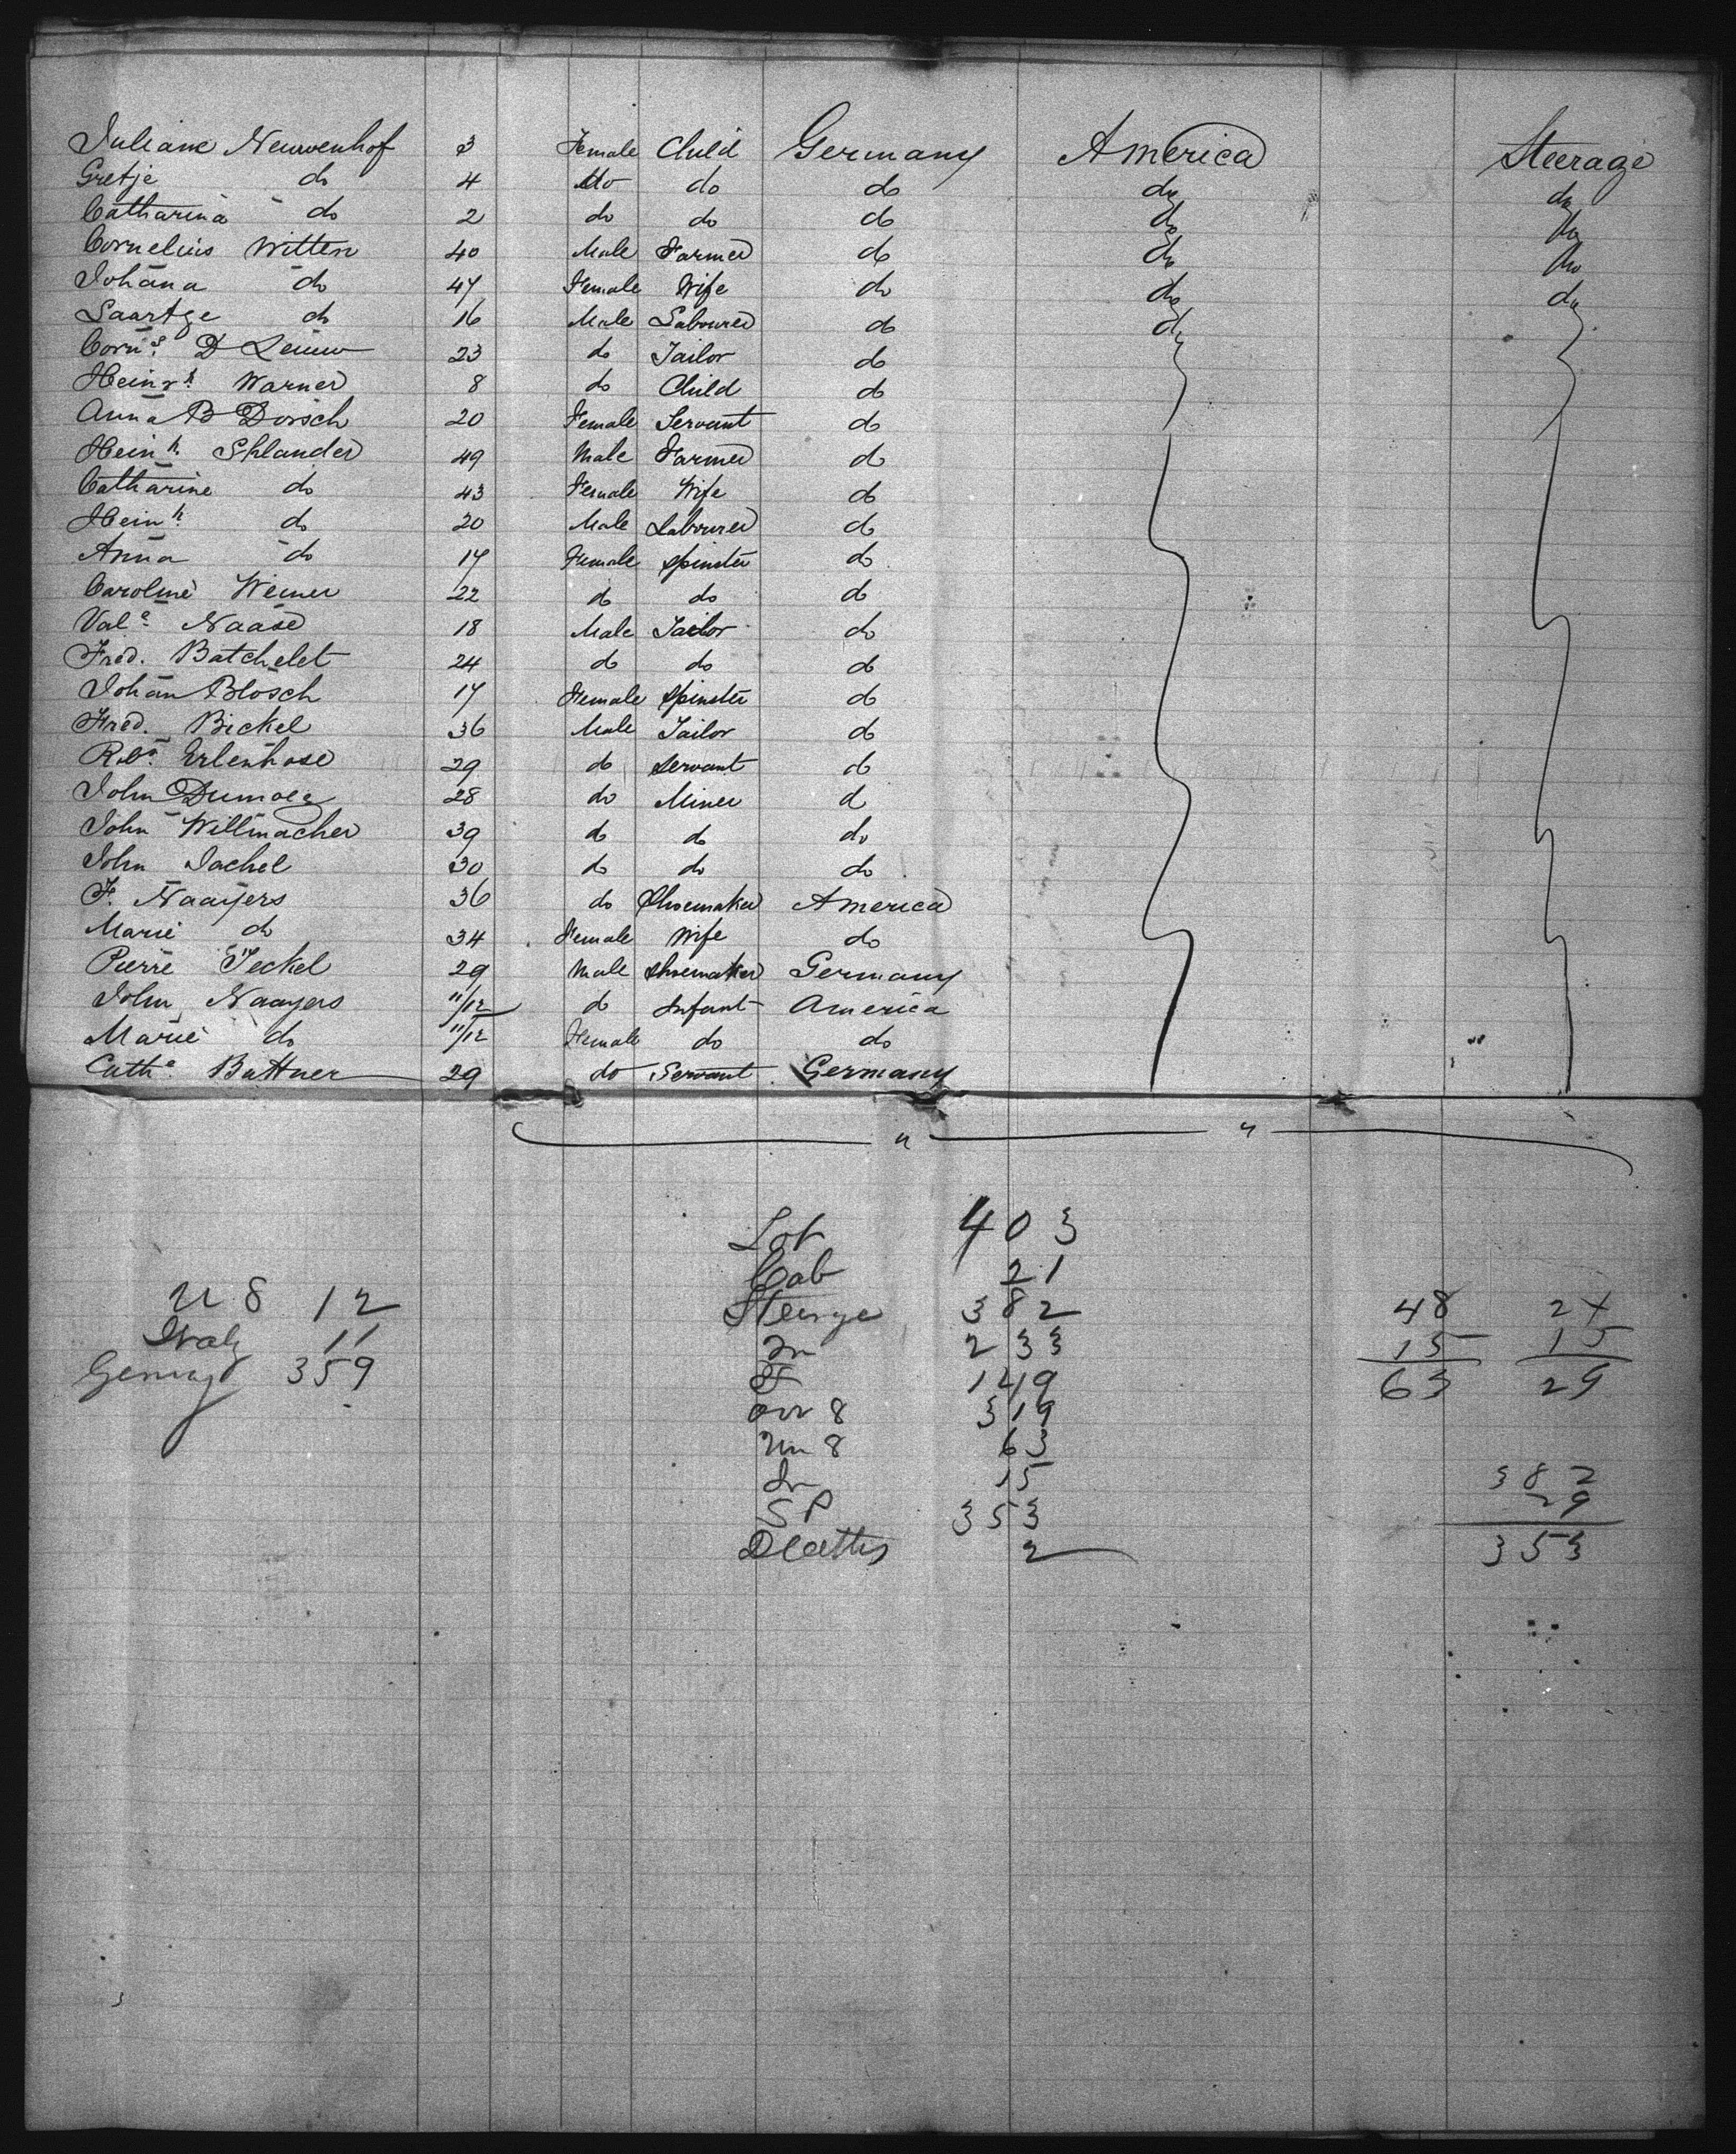 Juliane Neuwenhof 3 Female Child Germany America Steerage
Gretje do 4 do do do do do
Catharina do 2 do do do do do
Cornelius Witten 40 Male Farmer do do do
Johana do 47 Female Wife do do do
Saartge do 16 Male Labourer do do
Corns. D Leeuw 23 do Tailor do
Heinrh. Warner 8 do Child do
Anna B Dorsch 20 Female Servant do
Heinh. Shlander 49 Male Farmer do
Catharine do 43 Female Wife do
Heinh. do 20 Male Labourer do
Anna do 17 Female Spinster do
Caroline Weiner 22 do do do
Vale. Naase 18 Male Tailor do
Fred. Batchelet 24 do do do
Johan Blosch 17 Female Spinster do
Fred. Bickel 36 Male Tailor do
Erlenhose 29 do Servant do
John 28 do Miner do
John Willmacher 39 do do do
John Jachel 30 do do do
F. Naayers 36 do Shoemaker America
Marie do 34 Female Wife do
Pierre Jeckel 29 Male Shoemaker Germany
John Naayers 11/12 do Infant America
Marie do 11/12 Female do do
Cathe. Buttner 29 do Servant Germany
" "
Tot 403
Cab 21
U S 12 Steerge 382 48 24
Italy 11 M 233 15 15
Germany 359 F 149 63 29
ovr 8 319
Un 8 63
In 15 382
S P 353 29
Deaths 2 353